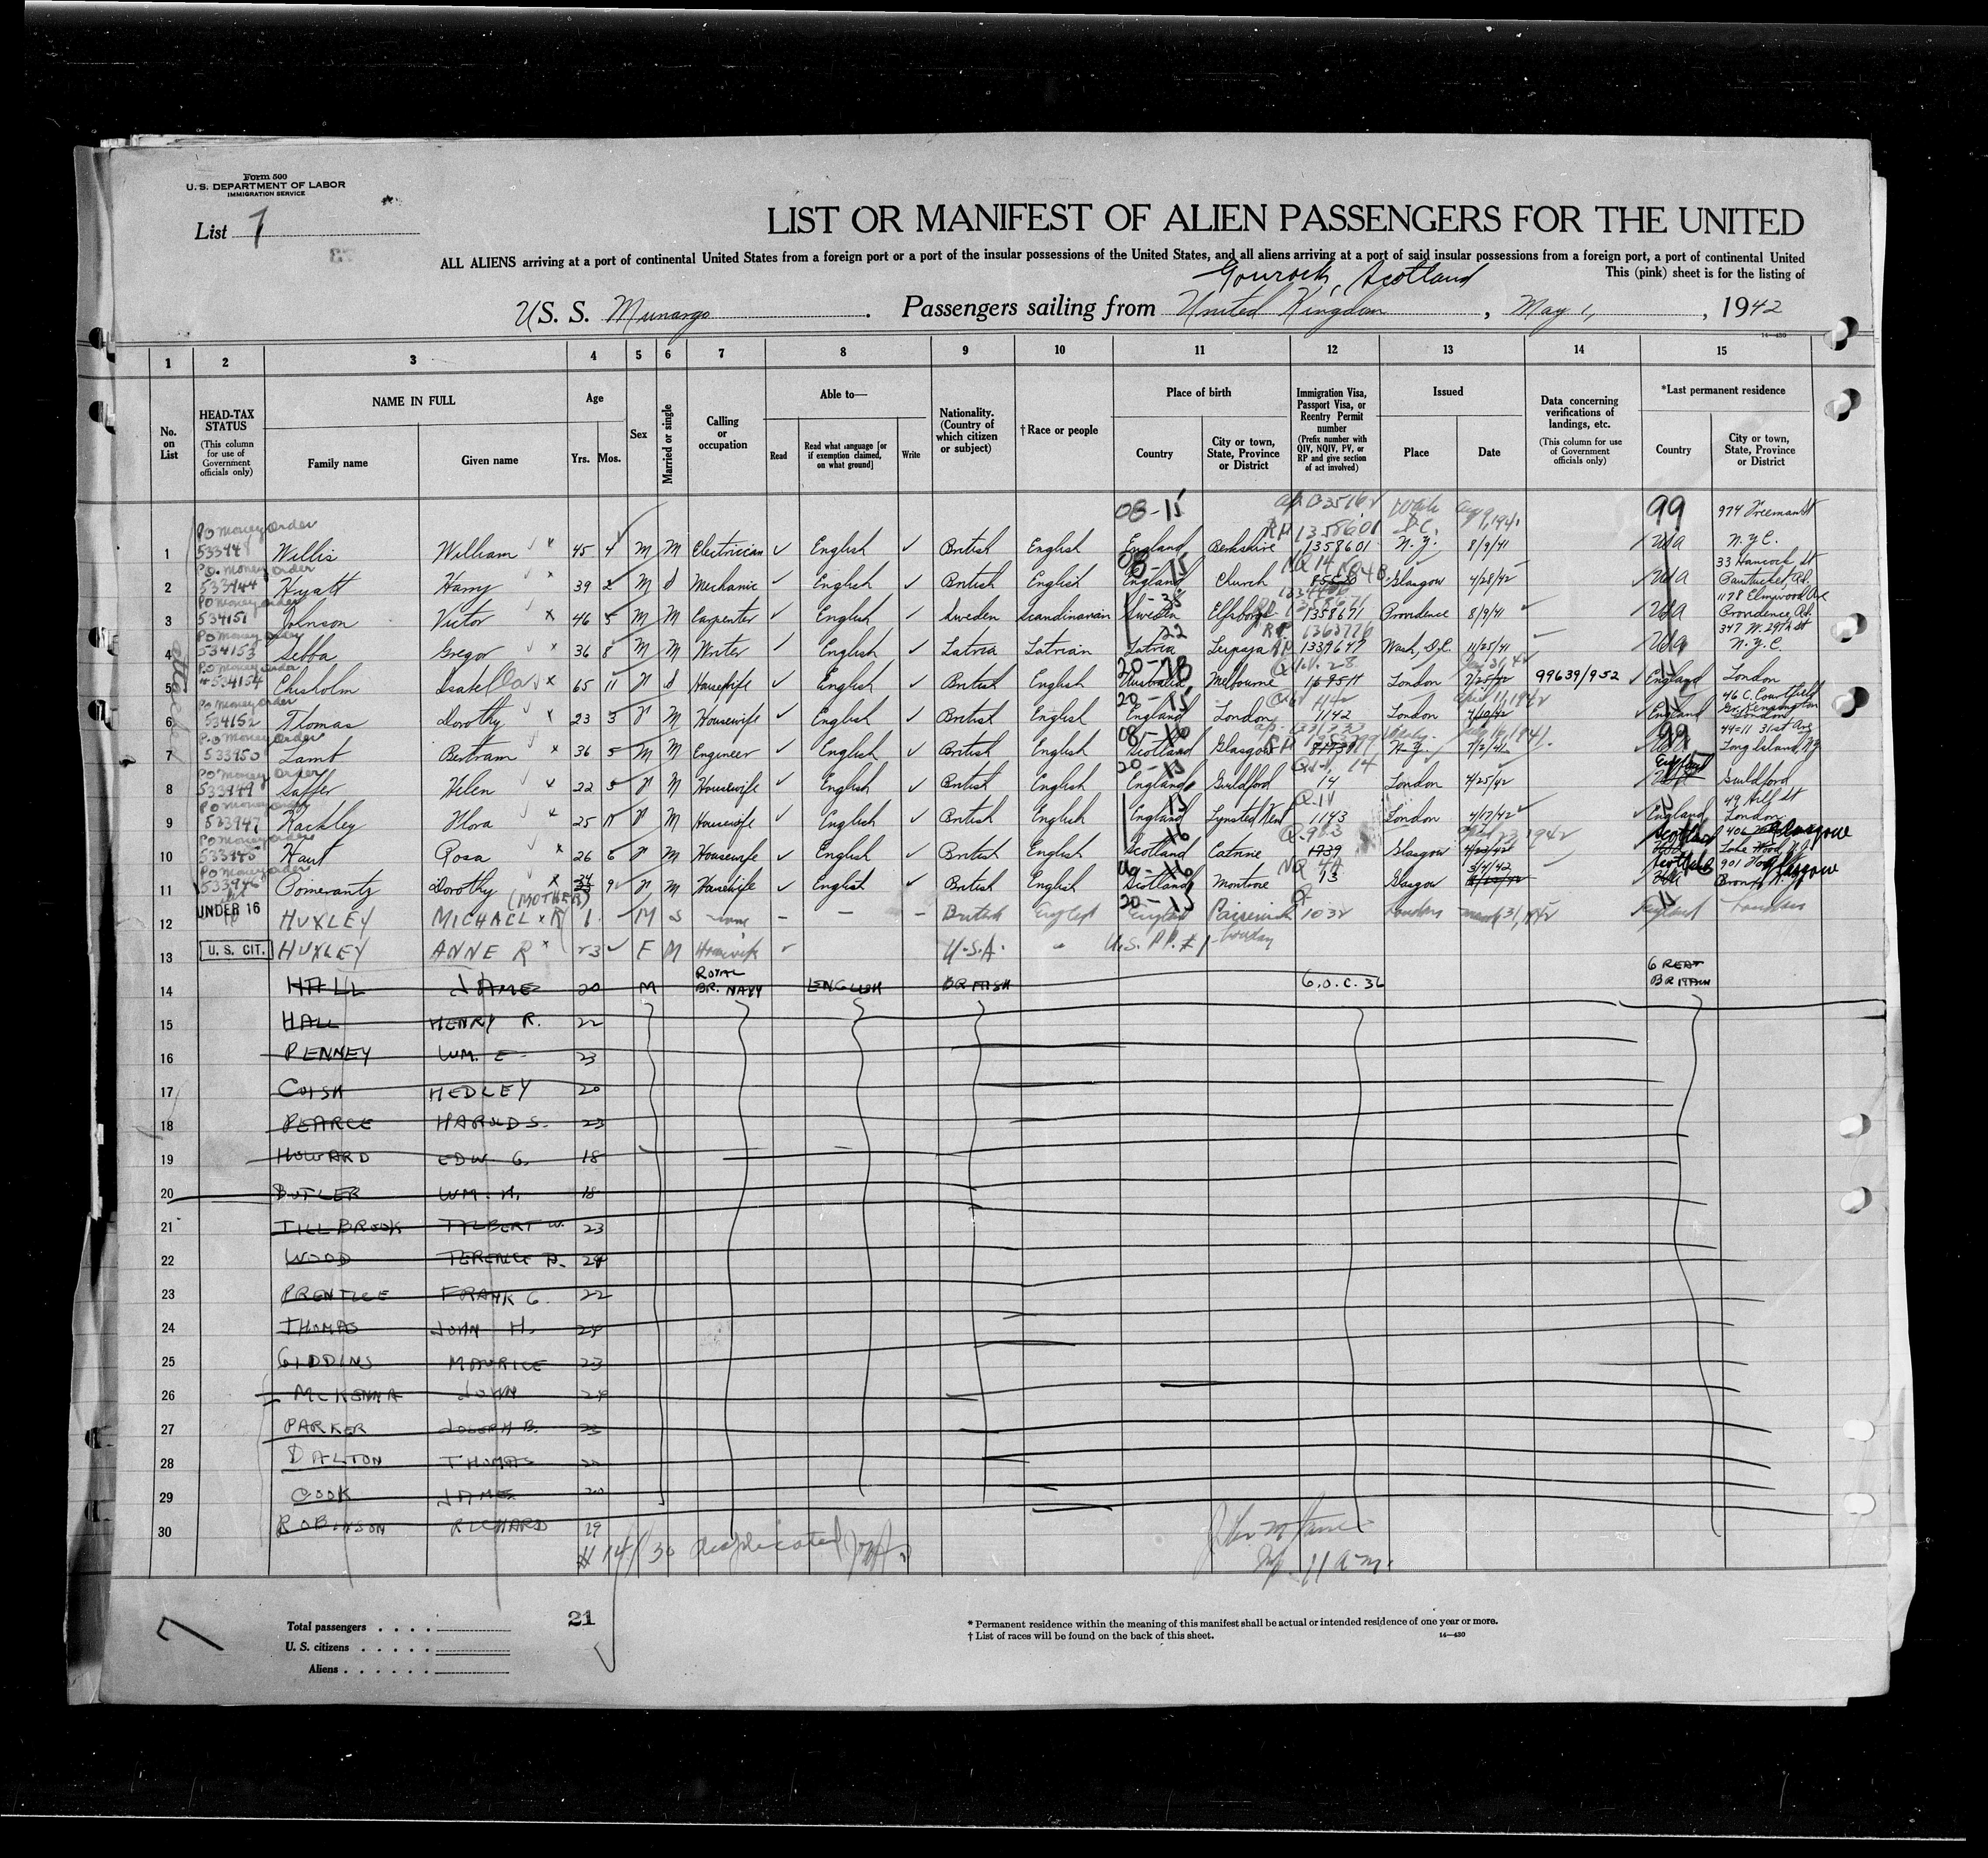 Form 500
U. S. DEPARTMENT OF LABOR
IMMIGRATION SERVICE
List 7
LIST OR MANIFEST OF ALIEN PASSENGERS FOR THE UNITED
ALL ALIENS arriving at a port of continental United States from a foreign port or a port of the insular possessions of the United States, and all aliens arriving at a port of said insular possessions from a foreign port, a port of continental United
This (pink) sheet is for the listing of
Gourock, Scotland
U S. S. Munargo. Passengers sailing from United Kingdom, May 1, 1942
14-430
1 2 3 4 5 6 7 8 9 10 11 12 13 14 15
No. on List
HEAD-TAX STATUS
(This column for use of Government officials only)
NAME IN FULL
Family name Given name
Age
Yrs. Mos.
Sex
Married or single
Calling or occupation
Able to—
Read
Read what language [or if exemption claimed, on what ground]
Write
Nationality. (Country of which citizen or subject)
†Race or people
Place of birth
Country
City or town, State, Province or District
Immigration Visa, Passport Visa, or Reentry Permit number
(Prefix number with QIV, NQIV, PV, or RP and give section of act involved)
Issued
Place Date
Data concerning verifications of landings, etc.
(This column for use of Government officials only)
*Last permanent residence
Country
City or town, State, Province or District
08-15 99 974 Freeman St
PO Money Order
RP 1358601 D.C.
1 Willis William 45 4 M M Electrician English British English England Berkshire 1358601 N.Y. 8/9/41 USA N.Y.C.
P.O. Money Order 33 Hancock St
2 533944 Hyatt Harry 39 2 M S Mechanic English British English England Church Glasgow 4/28/42 USA Pawtucket
PO Money Order 1178 Elmwood Ave
3 534151 Johnson Victor 46 5 M M Carpenter English Sweden Scandinavian Sweden 1358671 Providence 8/9/41 USA Providence
PO Money Order RP 1363776 347 W. 29th St
4 534153 Sebba Gregor 36 8 M M Writer English Latvia Latvian Latvia 1339647 Wash, D.C. 11/25/41 USA N.Y.C.
PO Money Order
5 534154 Chisholm 65 11 Housewife English British English Australia Melbourne London 99639/952 England London
PO Money Order 46 C. Courtfield
6 534152 Thomas Dorothy 23 3 M Housewife English British English England London 1142 London 4/10/42 England London
P.O Money Order 44-11 31st Ave
7 533950 Lamb Bertram 36 5 M M Engineer English British English Scotland Glasgow N.Y. 7/2/41 USA Long Island, NY
PO Money Order 20-15
8 533949 Saffer Helen 22 5 M Housewife English British English England Guildford 14 London 4/25/42 England Guildford
PO Money Order 49 Hilf St
9 533947 Kackley Flora 25 M Housewife English British English England Lynsted Kent 1143 London 4/17/42 England London
PO Money Order
10 Haut Rosa 26 6 M Housewife English British English Scotland Catrine 1939 Glasgow Scotland Glasgow
PO Money Order
11 533946 Pomerantz Dorothy 24 9 M Housewife English British English Scotland Montrose 13 Glasgow 3/4/42 Scotland Glasgow
(MOTHER)
UNDER 16
12 HUXLEY MICHAEL R 1 M S none British English England 1032 London March 31, 1942 England London
13 U. S. CIT. HUXLEY ANNE R 23 F M Housewife U.S.A. U.S. PP. # 1 London
14 HALL JAMES 20 M ROYAL BR. NAVY ENGLISH BRITISH G.O.C. 36 GREAT BRITAIN
15 HALL HENRY R. 22
16 PENNEY WM. E. 23
17 COISH HEDLEY 20
18 PEARCE HAROLD S. 23
19 HOWARD EDW G. 18
20 BUTLER WM. H. 18
21 TILLBROOK W. 23
22 WOOD TERENCE D. 24
23 PRENTICE FRANK G. 22
24 THOMAS JOHN H. 24
25 GIDDINS MAURICE 23
26 McKENNA JOHN 24
27 PARKER JOSEPH B. 23
28 DALTON THOMAS 20
29 COOK JAMES 20
30 ROBINSON RICHARD 19
# 14/30 duplicated
Insp. 11 a.m.
Total passengers
U. S. citizens
Aliens
21
7
* Permanent residence within the meaning of this manifest shall be actual or intended residence of one year or more.
† List of races will be found on the back of this sheet. 14—430